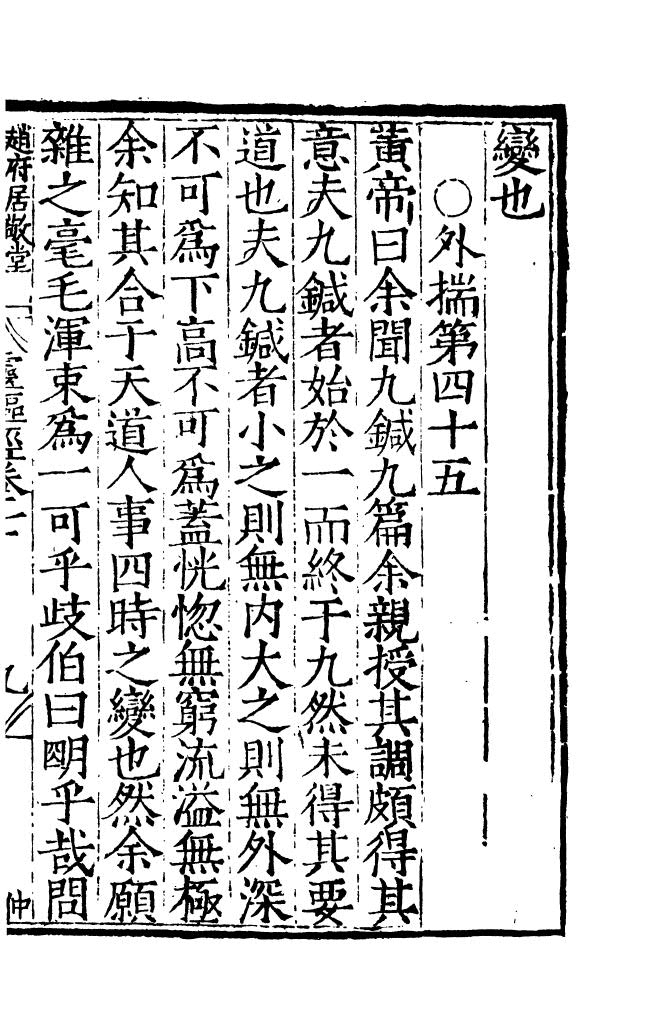 變也
○外揣第四十五
黃帝曰余聞九鍼九篇余親授其調頗得其
意夫九鍼者始於一而終于九然未得其要
道也夫九鍼者小之則無内大之則無外深
不可爲下高不可爲蓋恍惚無窮流溢無極
余知其合于天道人事四時之變也然余願
雜之毫毛渾束爲一可乎歧伯曰明乎哉問
趙府居敬堂
靈樞經卷
仲